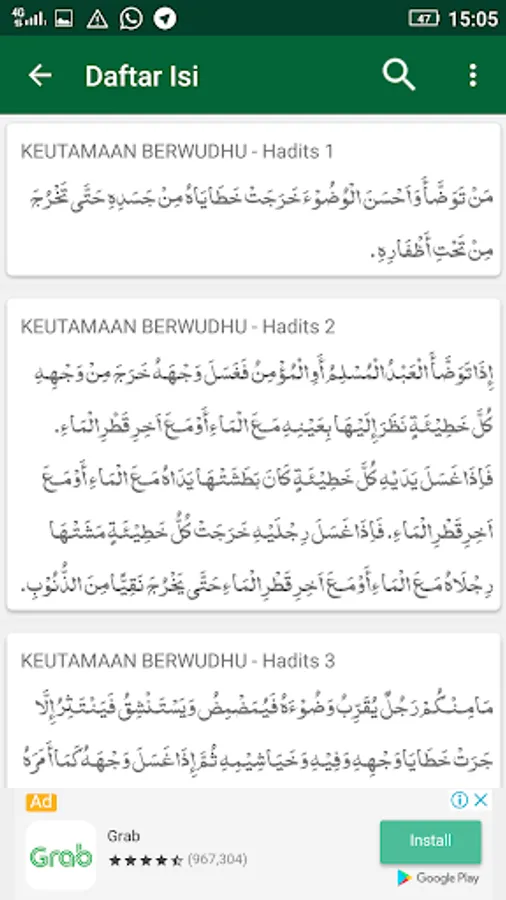 4G
47
15:05
Daftar Isi
KEUTAMAAN BERWUDHU - Hadits 1
مَنْ تَوَضَّأَ وَاَحْسَنَ الْوُضُوْءَ خَرَجَتْ خَطَايَاهُ مِنْ جَسَدِهِ حَتَّى تَخْرُجَ
مِنْ تَحْتِ أَظْفَارِهِ.
KEUTAMAAN BERWUDHU - Hadits 2
إِذَا تَوَضَّأَ الْعَبْدُ الْمُسْلِمُ أَوِ الْمُؤْمِنُ فَغَسَلَ وَجْهَهُ خَرَجَ مِنْ وَجْهِهِ
كُلُّ خَطِيْئَةٍ نَظَرَ إِلَيْهَا بِعَيْنِهِ مَعَ الْمَاءِ أَوْ مَعَ اَخِرِ قَطْرِ الْمَاءِ.
فَإِذَا غَسَلَ يَدَيْهِ كُلُّ خَطِيْئَةٍ كَانَ بَطَشَتْهَا يَدَاهُ مَعَ الْمَاءِ أَوْ مَعَ
اَخِرِ قَطْرِ الْمَاءِ. فَإِذَا غَسَلَ رِجْلَيْهِ خَرَجَتْ كُلُّ خَطِيْئَةٍ مَشَتْهَا
رِجْلَاهُ مَعَ الْمَاءِ أَوْ مَعَ اَخِرِ قَطْرِ الْمَاءِ حَتَّى يَخْرُجَ نَقِيًّا مِنَ الذُّنُوْبِ.
KEUTAMAAN BERWUDHU - Hadits 3
مَا مِنْكُمْ رَجُلٌ يُقَرِّبُ وَضُوْءَهُ فَيُمَضْمِضُ وَيَسْتَنْشِقُ فَيَنْتَثِرُ إِلَّا
جَرَتْ خَطَايَا وَجْهِهِ وَفِيْهِ وَخَيَاشِيْمِهِ ثُمَّ إِذَا غَسَلَ وَجْهَهُ كَمَا أَمَرَهُ
Ad
Grab
Grab
(967,304)
Install
Google Play